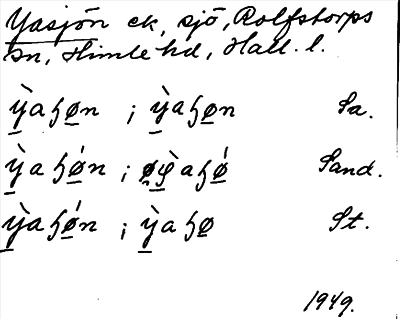 Yasjön ek, sjö, Rolfstorps
sn, Himle hd, Hall. l.
ỳ̲aɧø̲n ; ỳ̲aɧø̲n Sa.
ỳ̲aɧǿ̲n ; ỳ̲aɧǿ̲ Sand.
ỳ̲aɧǿ̲n ; ỳ̲aɧø̲ St.
1949.